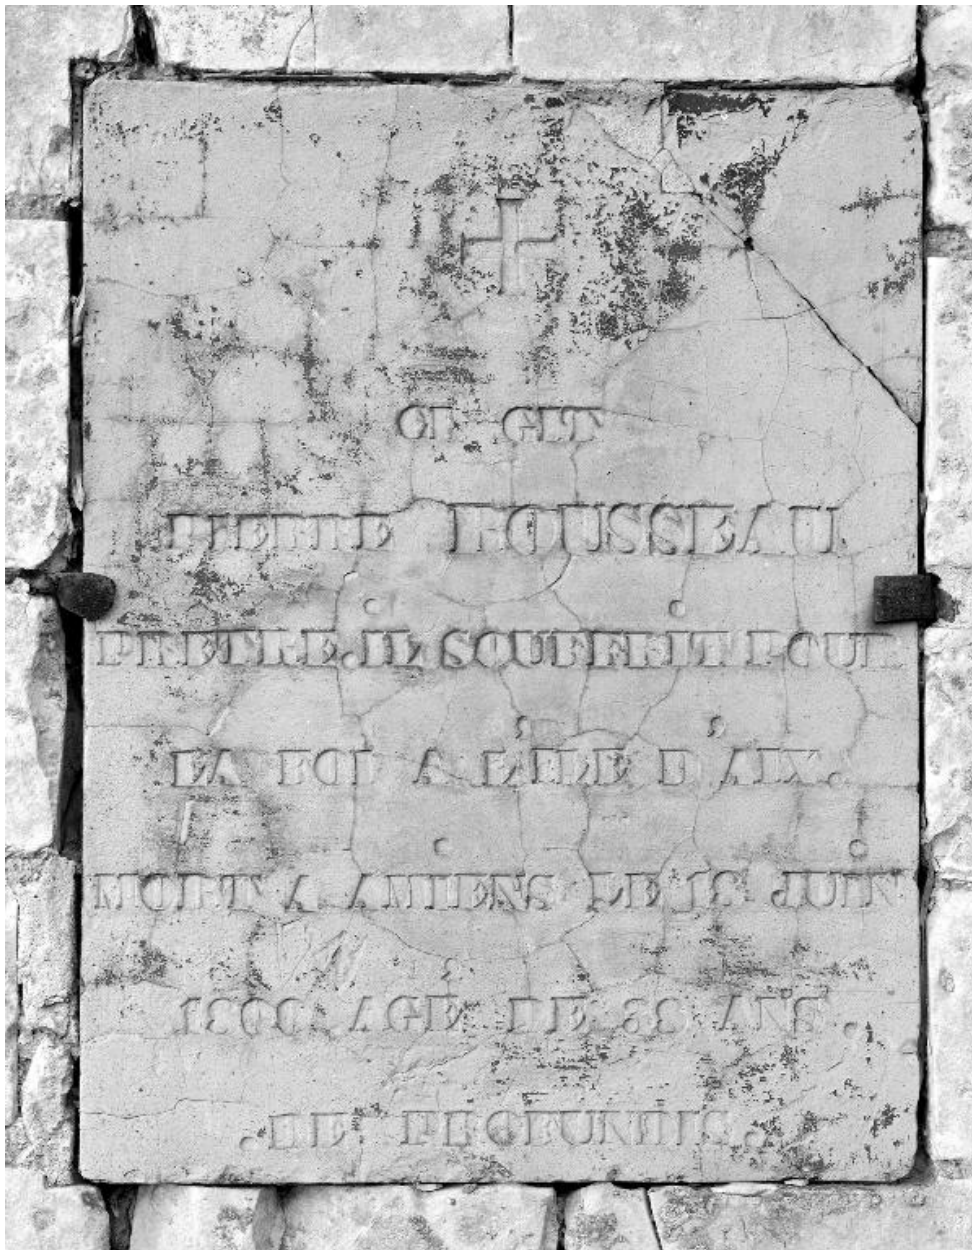 CI GIT
PIERRE ROUSSEAU
PRETRE. IL SOUFFRIT POUR
LA FOI A L'ILE D'AIX.
MORT A AMIENS LE JUIN
AGÉ DE ANS.
DE PROFUNDIS.